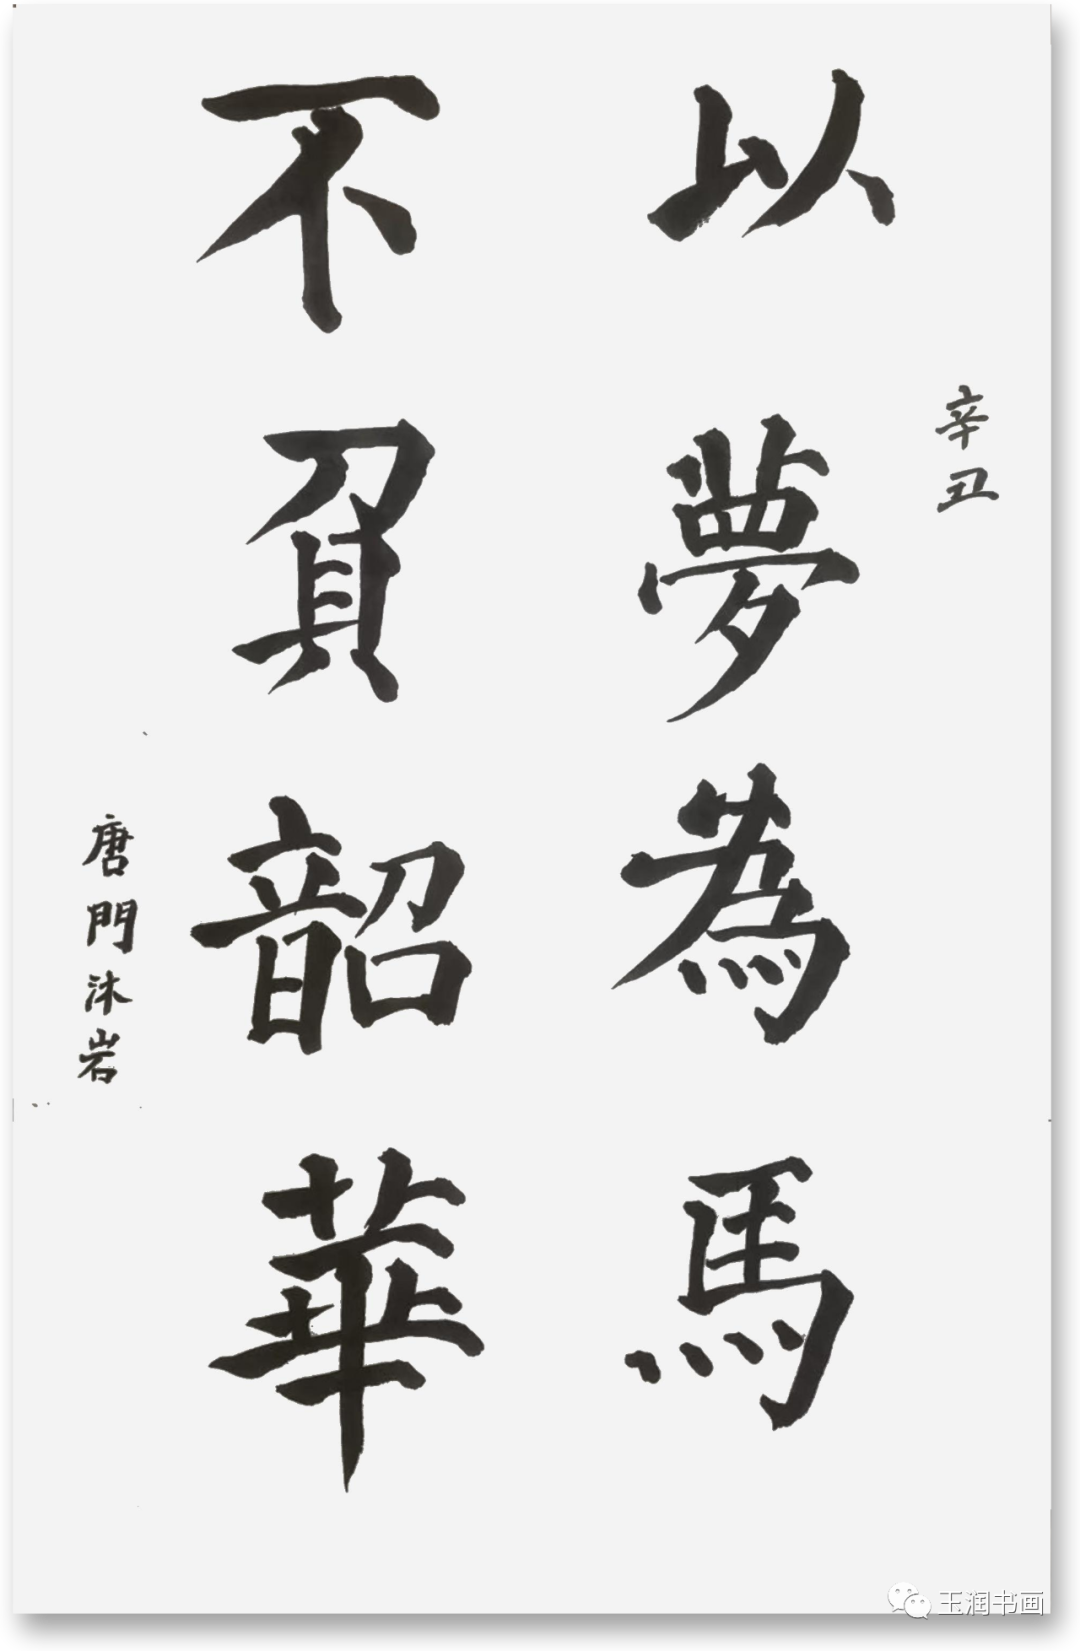 辛丑
以夢為馬
不負韶華
唐門沐岩
玉润书画